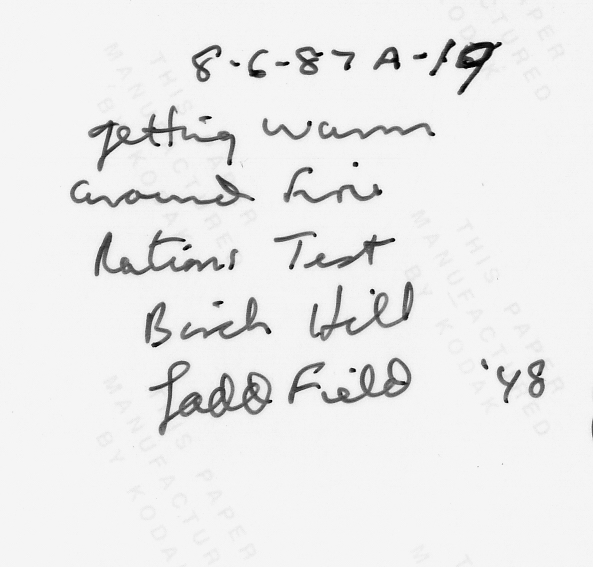 8-6-87 A-19
getting warm
around fire
Rations Test
Birch Hill
Ladd Field '48
THIS PAPER
MANUFACTURED
BY KODAK
THIS PAPER
MANUFACTURED
BY KODAK
THIS PAPER
MANUFACTURED
BY KODAK
THIS PAPER
MANUFACTURED
BY KODAK